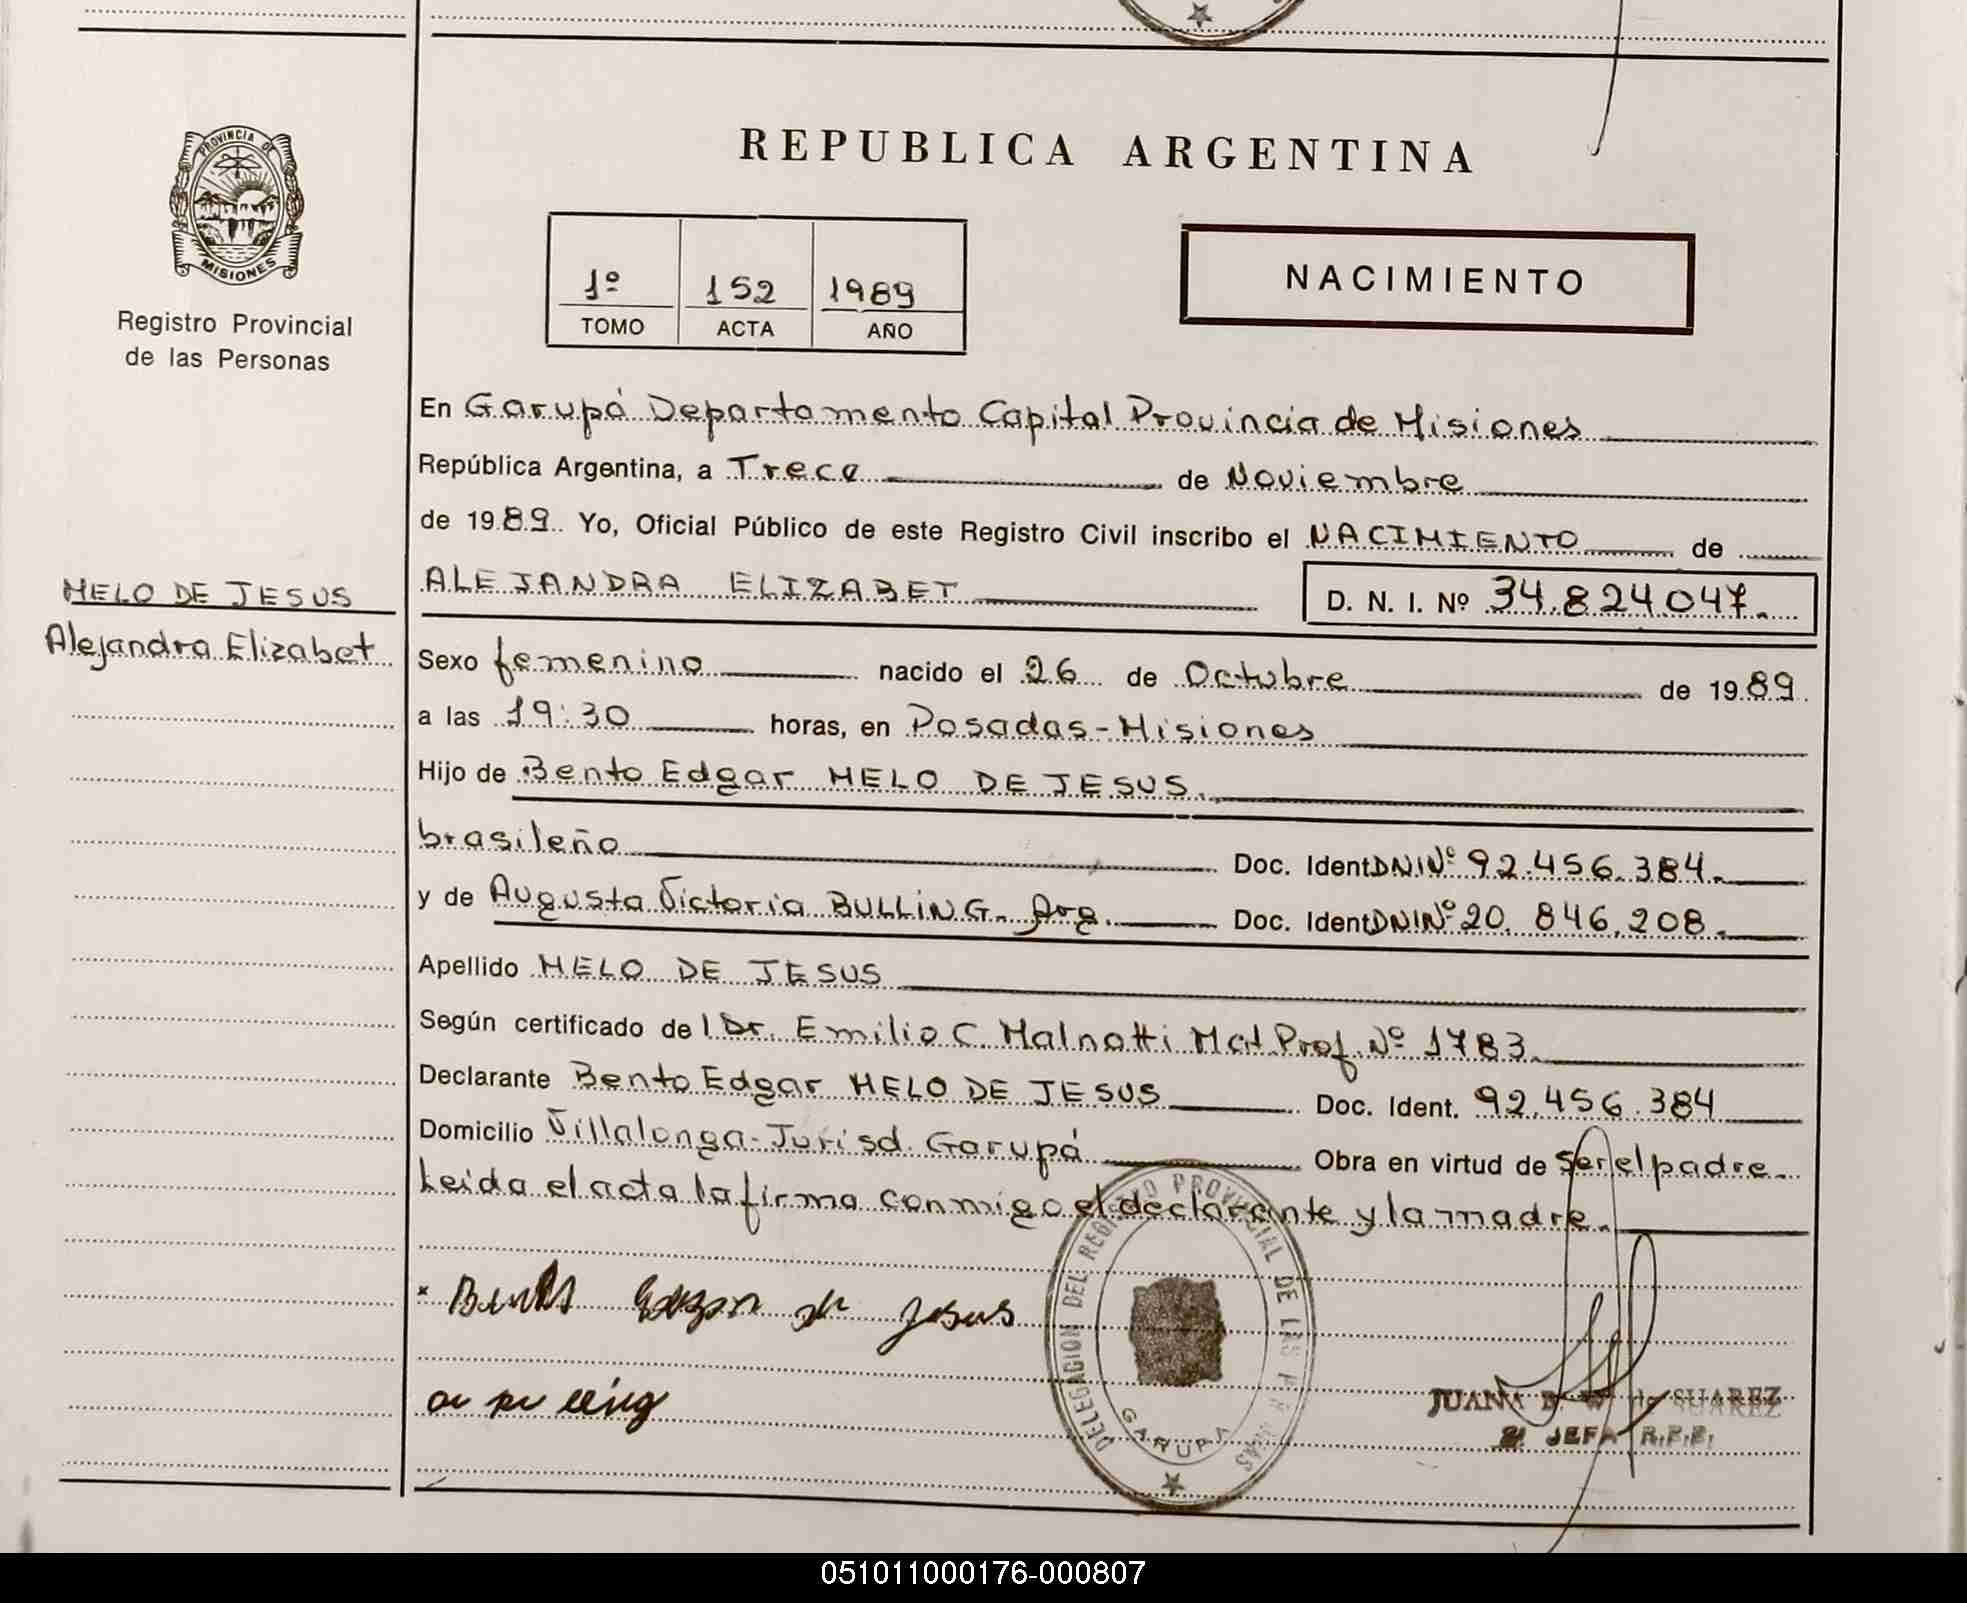 REPUBLICA ARGENTINA
PROVINCIA DE
MISIONES
Registro Provincial
de las Personas
1º 152 1989
TOMO ACTA AÑO
NACIMIENTO
En Garupá Departamento Capital Provincia de Misiones
República Argentina, a Trece de Noviembre
de 1989. Yo, Oficial Público de este Registro Civil inscribo el NACIMIENTO de
MELO DE JESUS
Alejandra Elizabet
ALEJANDRA ELIZABET D. N. I. Nº 34.824047.
Sexo femenino nacido el 26 de Octubre de 1989.
a las 19:30 horas, en Posadas-Misiones
Hijo de Bento Edgar MELO DE JESUS.
brasileño Doc. Ident DNI Nº 92.456.384.
y de Augusta Victoria BULLING. Arg. Doc. Ident DNI Nº 20.846.208.
Apellido MELO DE JESUS
Según certificado del Dr. Emilio C. Malnatti Mat Prof. Nº 1783.
Declarante Bento Edgar MELO DE JESUS Doc. Ident. 92.456.384
Domicilio Villalonga-Jurisd. Garupá Obra en virtud de ser el padre.
Leida el acta la firma conmigo el declarante y la madre.
DELEGACION DEL REGISTRO PROVINCIAL DE LAS PERSONAS
GARUPA
de Jesus
JUANA SUAREZ
JEFA R.P.P.
051011000176-000807